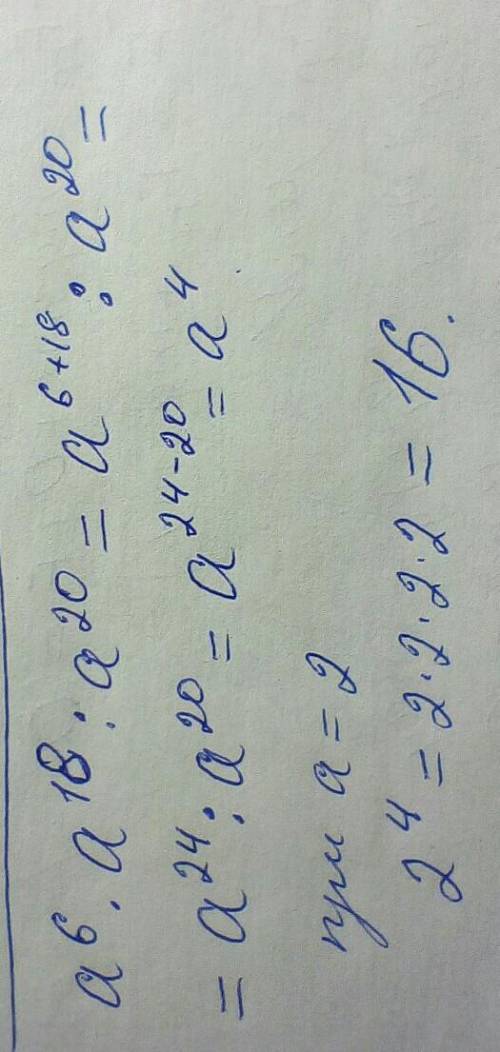 a⁶ · a¹⁸ : a²⁰ = a⁶⁺¹⁸ : a²⁰ =
= a²⁴ : a²⁰ = a²⁴⁻²⁰ = a⁴
при a = 2
2⁴ = 2·2·2·2 = 16.